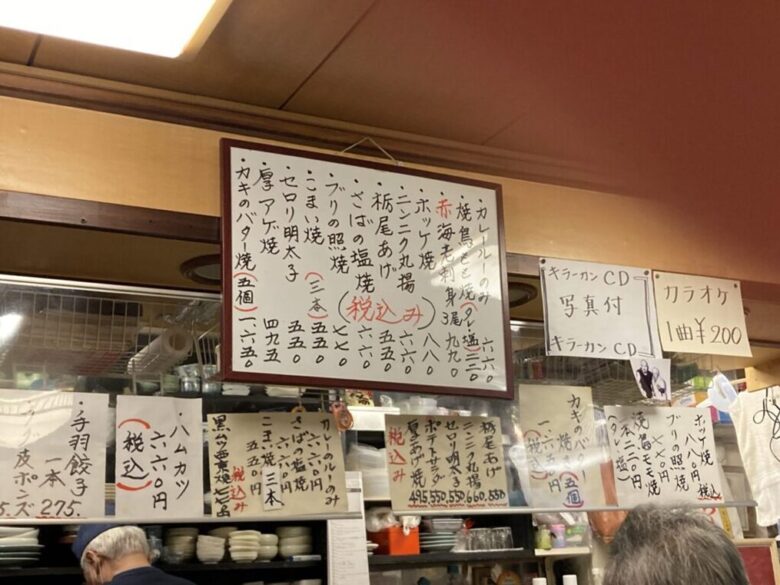 ・カレールーのみ 六六〇
・焼鳥もも焼(タレ・塩)二二〇
・赤海老刺身3尾 九九〇
・ホッケ焼 八八〇
・ニンニク丸揚 六六〇
・栃尾あげ 五五〇
・さばの塩焼 六六〇
・ブリの照焼 七七〇
・こまい焼(三本)五五〇
・セロリ明太子 五五〇
・厚アゲ焼 四九五
・カキのバター焼(五個)一六五〇
(税込み)
キラーカンCD
写真付
キラーカンCD
カラオケ
1曲¥200
・手羽餃子
一本
275.
皮ポンズ
・ハムカツ
六六〇円
(税込)
カレーのルーのみ
六六〇円
さばの塩焼
六六〇円
こまい焼三本
五五〇円
税込み
栃尾あげ 550
ニンニク丸揚 660
セロリ明太子 550
ポテトサラダ 550
厚あげ焼 495
税込み
カキのバター焼(五個)
一六五〇円
(税込み)
ホッケ焼
八八〇円
ブリの照焼
七七〇円
焼鳥モモ焼
一本二二〇円
(タレ・塩)
税込